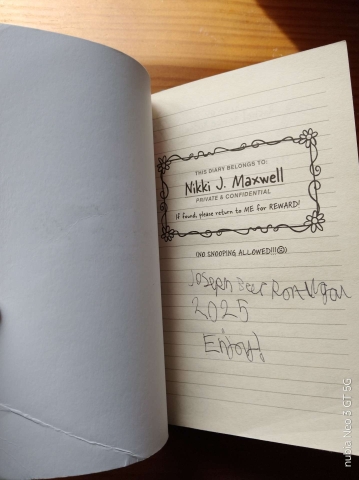 THIS DIARY BELONGS TO:
Nikki J. Maxwell
PRIVATE & CONFIDENTIAL
If found, please return to ME for REWARD!
(NO SNOOPING ALLOWED!!!☹)
Joseph
2025
Enjoy!
nubia Neo 3 GT 5G